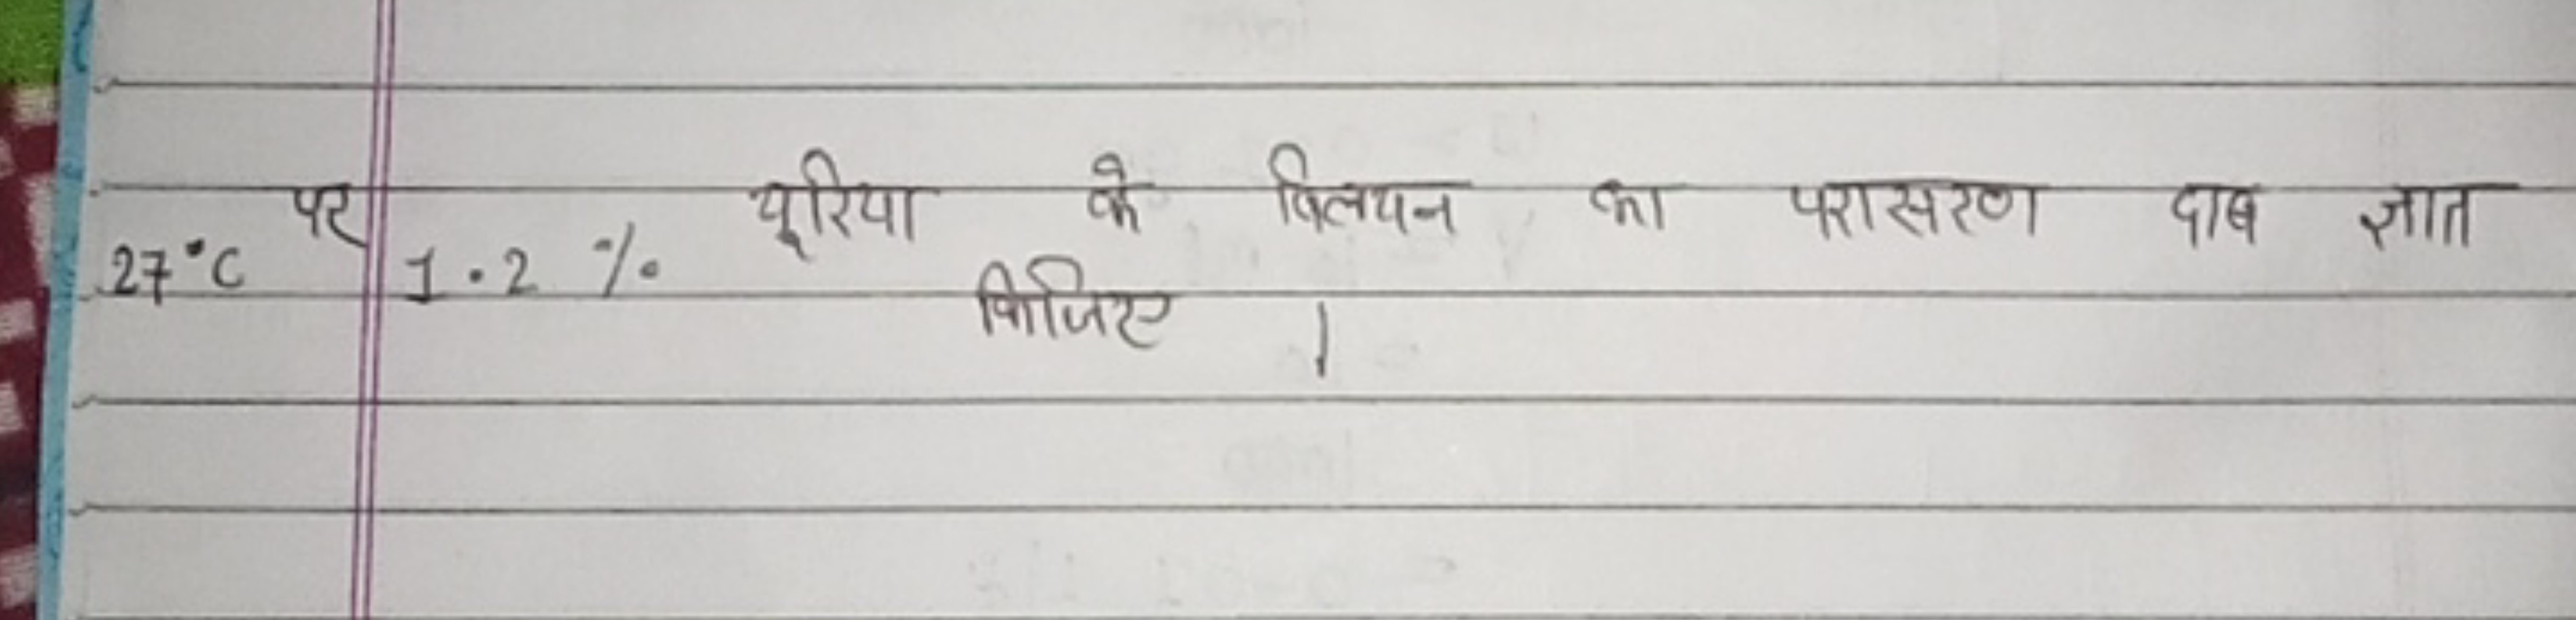 27°C पर 1.2 % यूरिया के विलयन का परासरण दाब ज्ञात
किजिए |